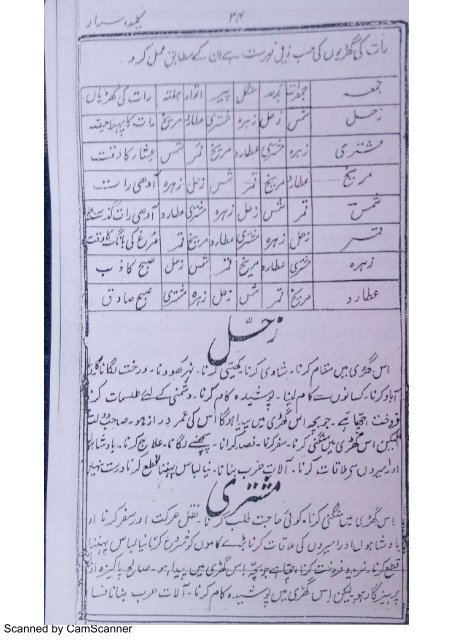 ۳۴
رات کی گھڑیوں کی حسب ذیل فہرست ہے ان کے مطابق عمل کرو۔
جمعہ جمعرات بدھ منگل پیر اتوار ہفتہ رات کی گھڑیاں
زحل شمس زحل زہرہ مشتری عطارد مریخ رات کا پہلا حصہ
مشتری زہرہ مشتری عطارد مریخ قمر شمس عشار کا وقت
مریخ عطارد مریخ قمر شمس زحل زہرہ آدھی رات
شمس قمر شمس زحل زہرہ مشتری عطارد آدھی رات گذشتہ
قمر زحل زہرہ مشتری عطارد مریخ قمر مرغ کی بانگ کا وقت
زہرہ مشتری عطارد مریخ قمر شمس زحل صبح کاذب
عطارد مریخ قمر شمس زحل زہرہ مشتری صبح صادق
زحل
اس گھڑی میں مقام کرنا۔ شادی کرنا۔ کھیتی کرنا۔ نہر کھودنا۔ درخت لگانا
آباد کرنا۔ کسانوں سے کام لینا۔ پوشیدہ کام کرنا۔ دشمنی کے لئے طلسمات کرنا
فروخت اچھا ہے۔ جو بچہ اس گھڑی میں پیدا ہوگا اس کی عمر دراز ہو۔ صاحب دولت
لیکن اس گھڑی میں منگنی کرنا۔ سفر کرنا۔ فصد کرانا۔ پچھنے لگانا۔ علاج کرنا۔ بادشاہو
اور امیروں سے ملاقات کرنا۔ آلات حرب بنانا۔ نیا لباس پہننا قطع کرنا درست نہیں
مشتری
اس گھڑی میں منگنی کرنا۔ کوئی حاجت طلب کرنا۔ نقل حرکت اور سفر کرنا او
بادشاہوں اور امیروں کی ملاقات کرنا بڑے کاموں کو شروع کرنا نیا لباس پہننا
قطع کرنا۔ خرید و فروخت کرنا، اچھا ہے جو بچہ اس گھڑی میں پیدا ہو۔ صالح پاکیزہ او
پرہیزگار ہو لیکن اس گھڑی میں پوشیدہ کام کرنا۔ آلات حرب بنانا
Scanned by CamScanner